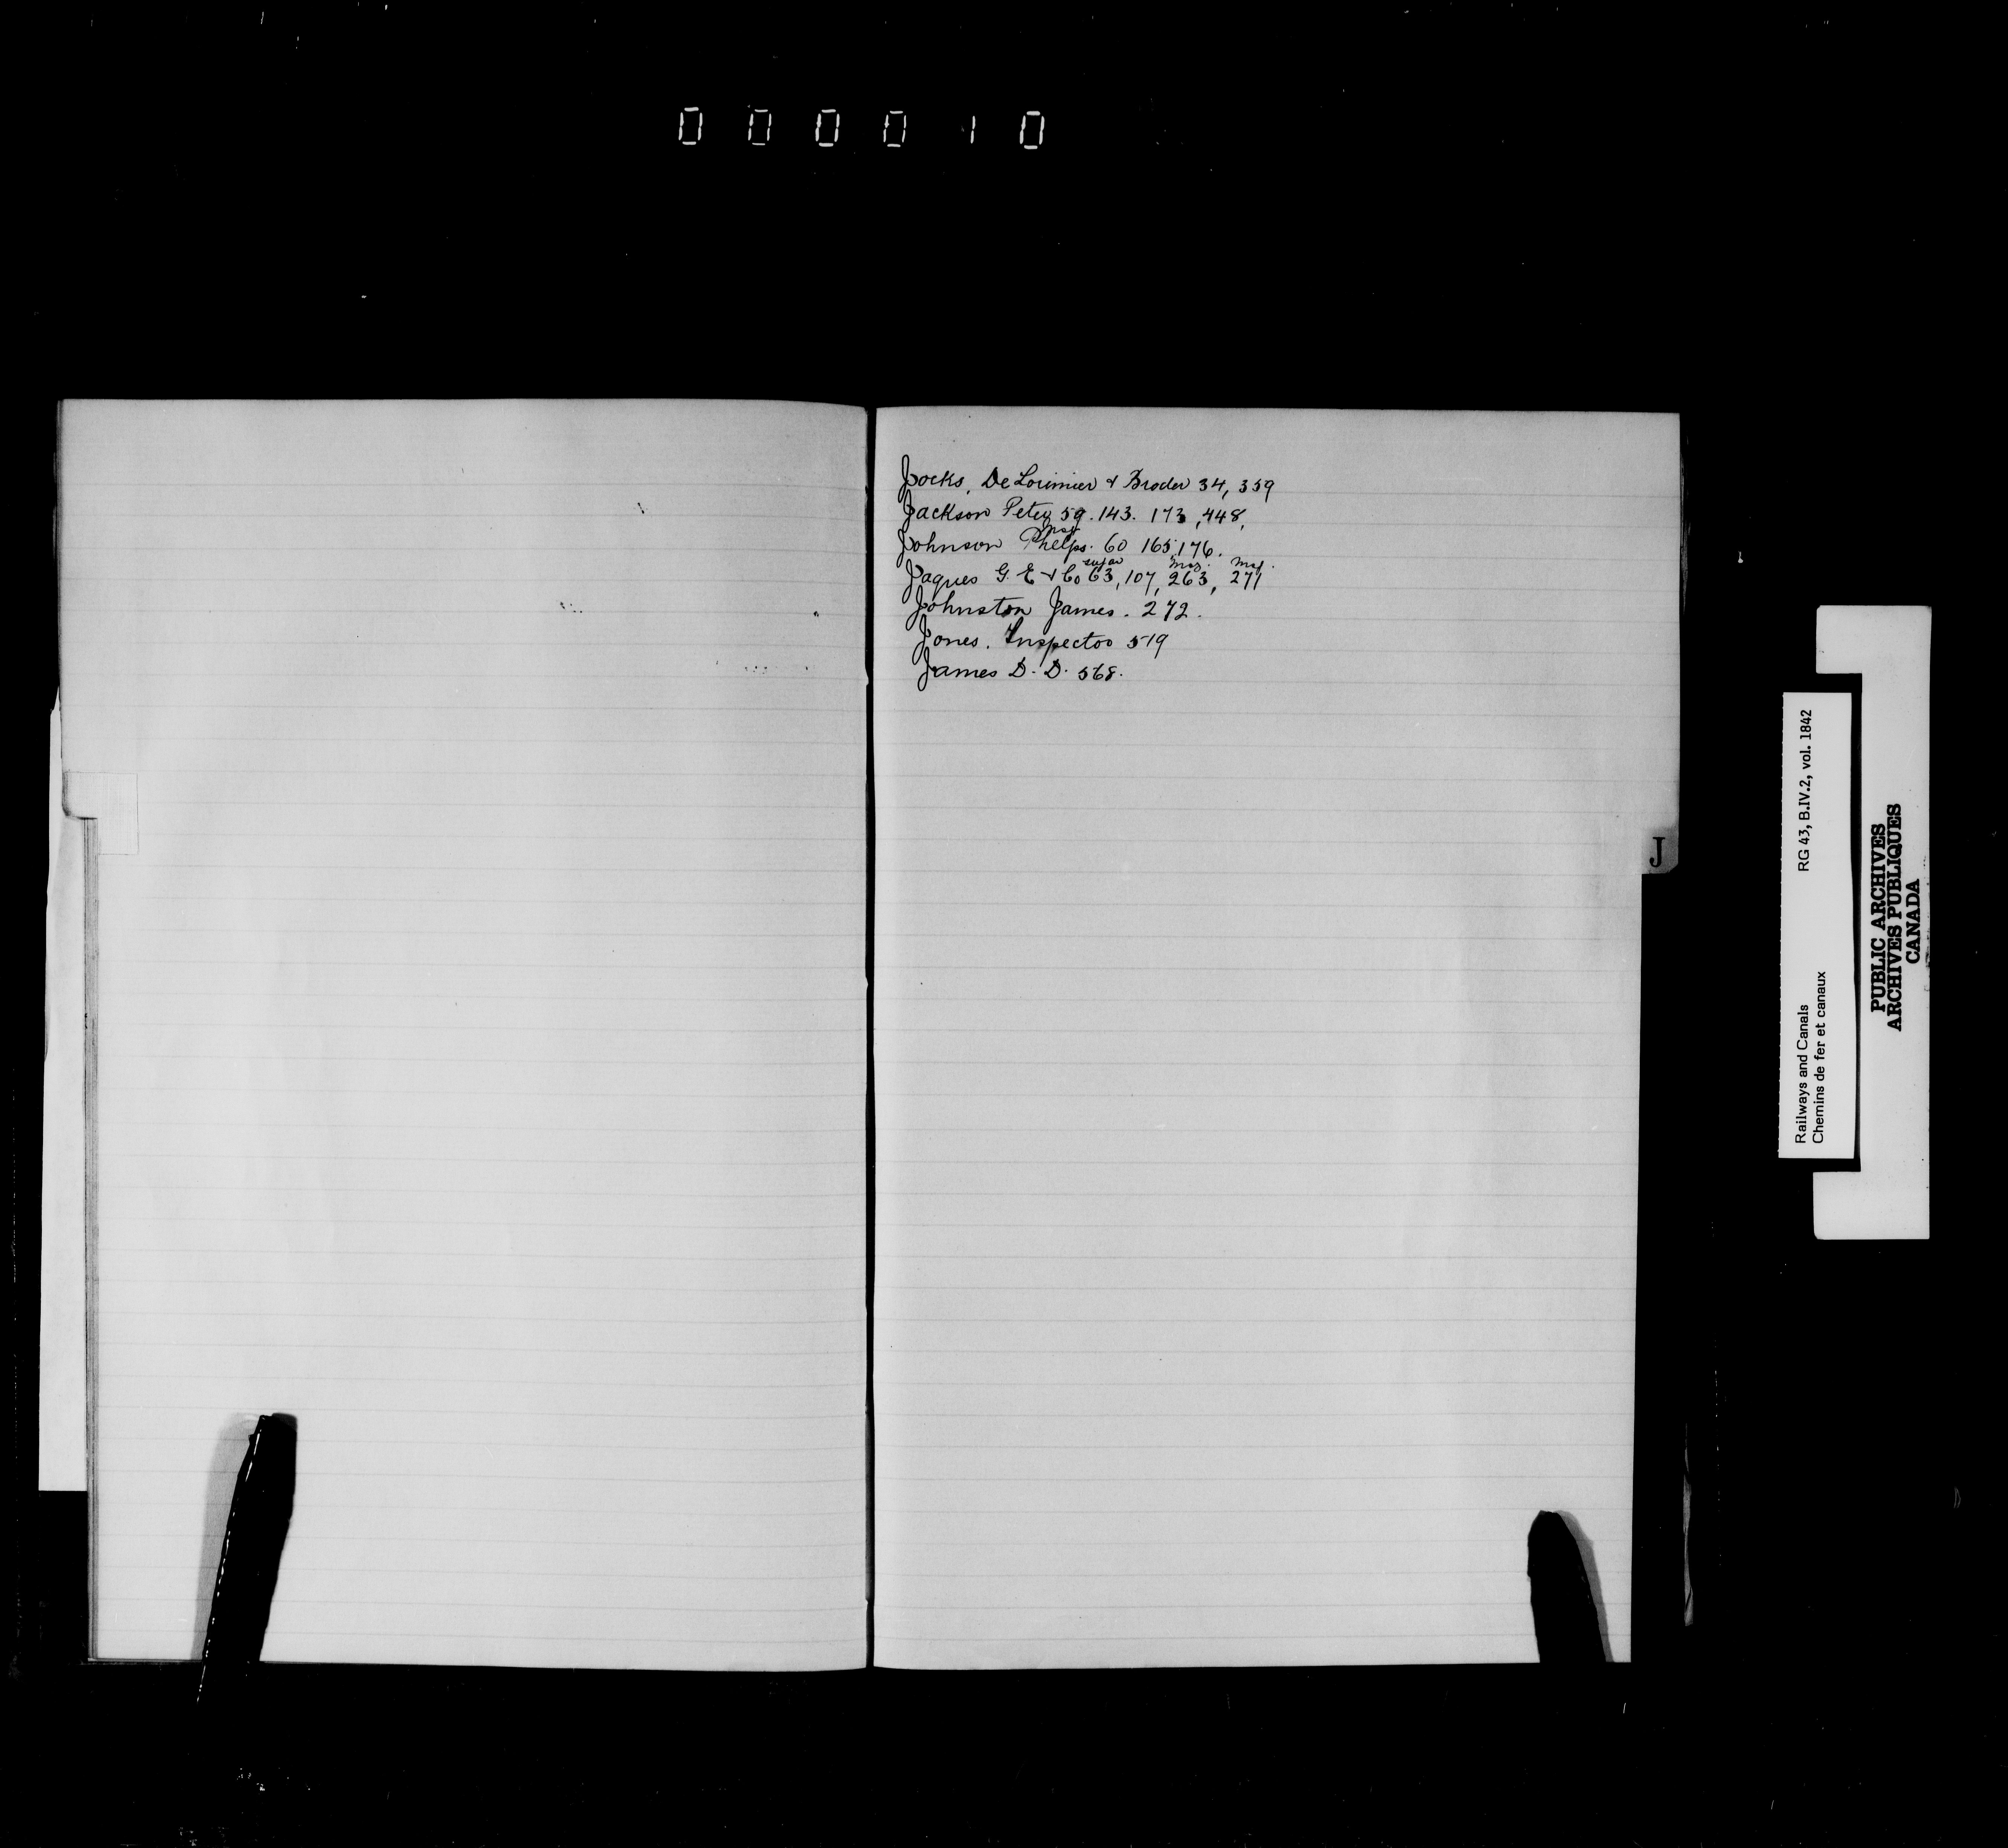 000010
Jocks, De Lorimier & Broder 34, 359
Jackson Peter 59. 143. 173, 448,
Johnson Phelps. 60 165, 176.
sugar
Jaques G. E & Co 63, 107, 263, 271
Johnston James. 272.
Jones. Inspector 519
James D. D. 568.
J
Railways and Canals RG 43, B.IV.2, vol. 1842
Chemins de fer et canaux
PUBLIC ARCHIVES
ARCHIVES PUBLIQUES
CANADA